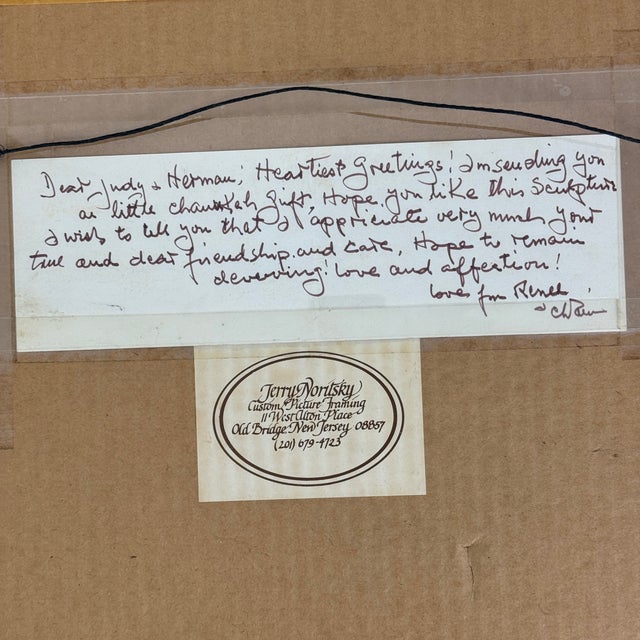 Dear Judy & Herman! Heartiest Greetings! I'm sending you
a little chanukah gift, Hope you like this Sculpture
I wish to tell you that I appriciate very much your
true and dear friendship and care, Hope to remain
deverving! love and affection!
love, from Renee
&
Jerry Noritsky
Custom Picture Framing
11 West Ulton Place
Old Bridge New Jersey 08857
(201) 679-4723